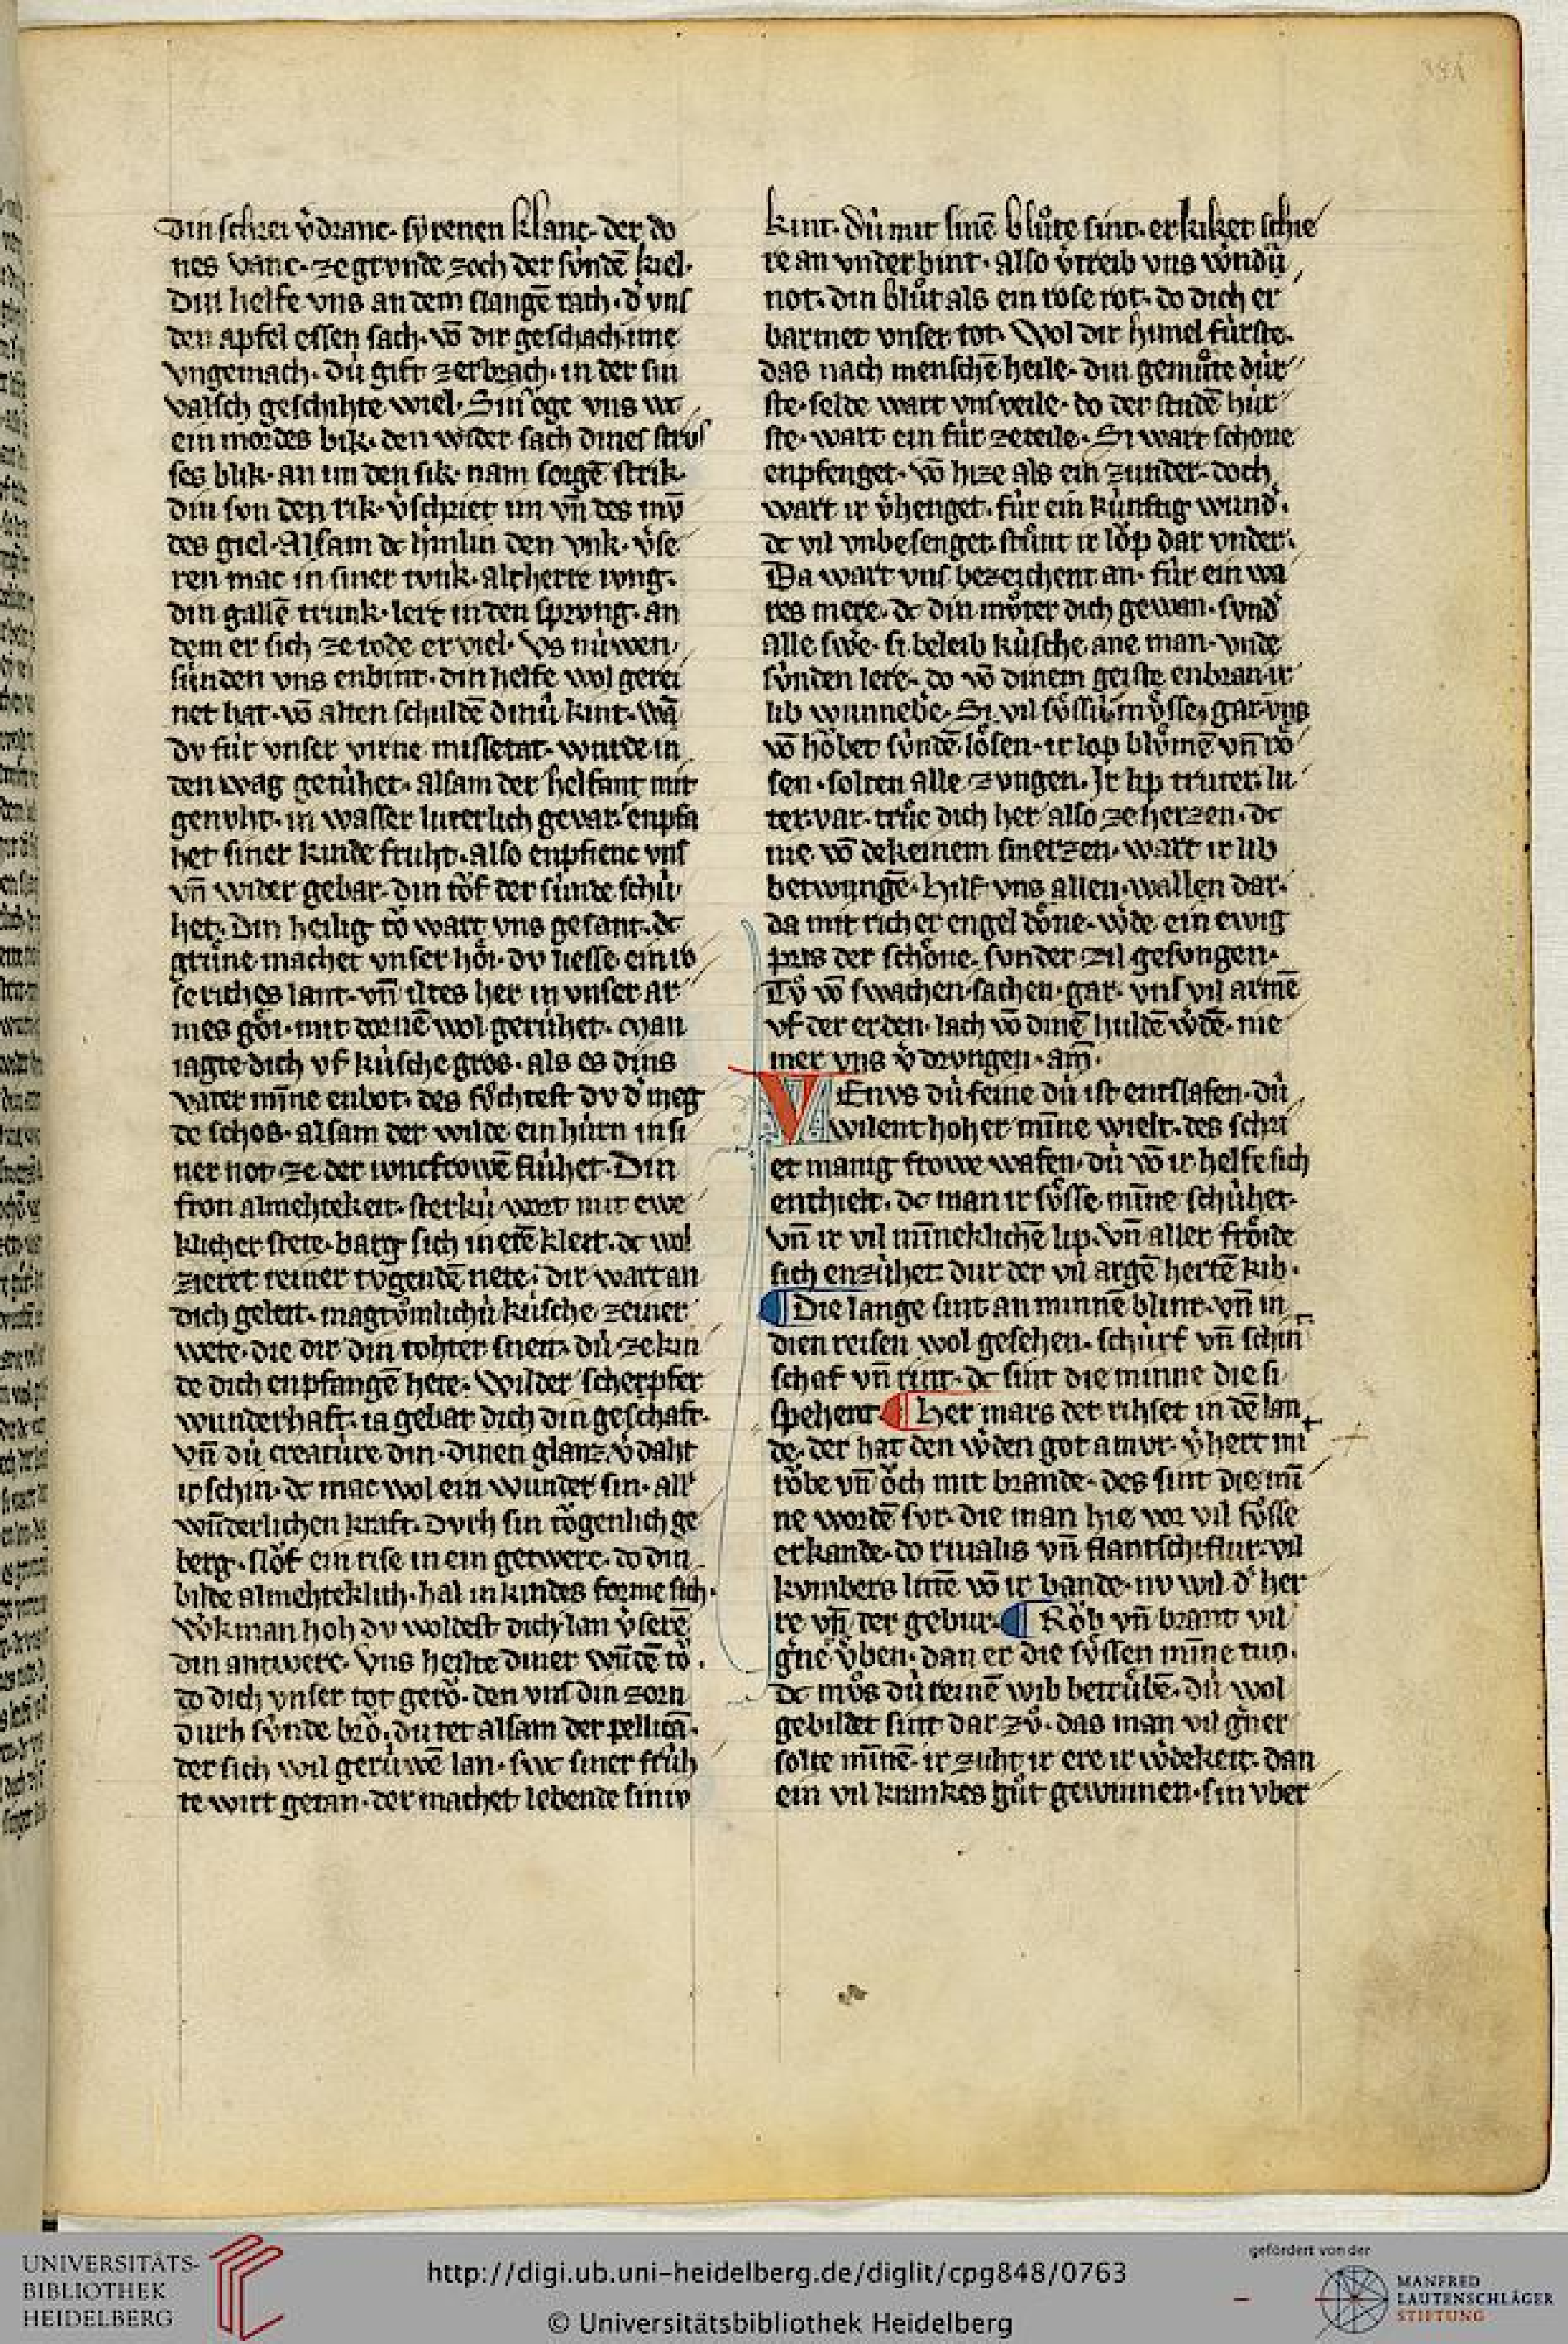 din schrei v̾dranc. syrenen klanc. der do
nes vanc. ze grvnde zoch der sv́ndē kiel.
Din helfe vns an dem slangē rach. d̾ vns
den apfel essen sach. vō dir geschach. ime
vngemach. dú gift zerbrach. in der sin
valsch geschihte wiel. Sin oͮge vns wc
ein mordes bik. den wider sach dines strvs
ses blik. an im den sik. nam sorgē strik.
din svn den rik. v̾schriet im vn̄ des mv̄
des giel. Alsam dc hm̾lin den vnk. v̾se
ren mac in siner tvnk. altherre ivng.
din gallē trunk. lert in den sprvng. an
dem er sich ze tode erviel. Vs núwen
súnden vns enbint. din helfe wol gerei
net hat. vō alten schuldē dinú kint. wā
dv für vnser virne missetat. wurde in
den wag getúhet. alsam der helfant mit
genvht. in wasser luterlich gevar. enpfa
het siner kinde fruht. also enpfienc vns
vn̄ wider gebar. din toͮf der súnde schú
het. Din heilig toͮ wart vns gesant. dc
grͤune machet vnser hoͤi. dv liesse ein ro
se riches lant. vn̄ iltes her in vnser ar
mes goͤi. mit dornē wol gerúhet. Man
iagte dich vf kúsche gros. als es dins
vater mīne enbot. des foͤchtest dv d̾ meg
de schos. alsam der wilde einhúrn in si
ner not. ze der iuncfrowē flúhet. Din
fron almehtekeit. sterkú wort mit ewe
klicher stete. barg sich in erē kleit. dc wol
zieret reiner tvgendē nete. dir wart an
dich geleit. magtoͮmlichú kúsche zeiner
wete. die dir din tohter sneit. dú ze kin
de dich enpfangē hete. Wilder scherpfer
wunderhaft. ia gebar dich din geschaft.
vn̄ dú creatúre din. dinen glanz v̾daht
ir schin. dc mac wol ein wunder sin. all̾
wn̄derlichen kraft. Dvrh sin toͮgenlich ge
berg. sloͮf ein rise in ein getwerc. do din
bilde almehteklich. hal in kindes forme sich.
Wk̾man hoh dv woldest dich lan v̾serē
din antwerc. Vns heilte diner wn̄dē toͮ.
do dich vnser tot geroͮ. den vns din zorn
durh sv́nde broͮ. du tet alsam der pellicā.
der sich wil gerúwē lan. swc siner früh
te wirt getan. der machet lebende siniv
kint. Dú mit sinē bluͦte sint. erkiket schie
re an vnderbint. also v̾treib vns wn̾dú
not. din bluͦt als ein rose rot. do dich er
barmet vnser tot. Wol dir himel fúrste.
das nach menschē heile. din gemuͤte dúr
ste. selde wart vns veile. do der studē húr
ste. wart ein für zeteile. Si wart schone
enpfenget. vō hize als ein zunder. doch
wart ir v̾henget. für ein kúnftig wund̾.
dc vil vnbesenget. stuͦnt ir loͮp dar vnder.
Da wart vns bezeichent an. für ein wa
res mere. dc din moͮter dich gewan. svnd̾
alle swe̾. si beleib kúsche ane man. vnde
súnden lere. do vō dinem geiste enbran. ir
lib wunnebe̾. Si vil sössú mösse gar vns
vō hoͮbet súndē lösen. ir lop blvͦmē vn̄ ro
sen. solten alle zvngen. Ir lip truter lu
ter var. truͦc dich her also ze herzen. dc
nie vō dekeinem smerzen. wart ir lib
betwngē. Hilf vns allen wallen dar.
da mit richer engel döne. wd̾e ein ewig
pris der schöne. svnder zil gesvngen.
Tvͦ vō swachen sachen gar. vns vil armē
vf der erden. lach vō dinē huldē wd̾ē. nie
mer vns v̾drvngen. am̄.
VEnvs dú feine dú ist entslafen. dú
wilent hoher mīne wielt. des schri
et manig frowe wafen. dú vō ir helfe sich
enthielt. dc man ir sv́sse mīne schúhet.
vn̄ ir vil mīneklichē lip. vn̄ aller froͤide
sich enzúhet. dur der vil argē hertē kib.
Die lange sint an minnē blint. vn̄ in
dien reisen wol gesehen. schúrf vn̄ schin
schaf vn̄ rint. dc sint die minne die si
spehent. Her mars der rihset in dē lan
de. der hat den wd̾en got amvr. v̾hert mi
roͮbe vn̄ oͮch mit brande. des sint die mī
ne wordē svr. die man hie vor vil sv́sse
erkande. do riualis vn̄ flantschiflur. vil
kvmbers littē vō ir bande. nv wil d̾ her
re vn̄ der gebur. Roͮb vn̄ brant vil
gn̾e v̾ben. dan er die sv́ssen mīne tuo.
dc mvͦs dú reinē wib betruͤbē. dú wol
gebildet sint dar zvͦ. das man vil gn̾er
solte mīnē. ir zuht ir ere ir wd̾ekeit. dan
ein vil krankes guͦt gewinnen. sin vber
UNIVERSITÄTS-
BIBLIOTHEK
HEIDELBERG
http://digi.ub.uni-heidelberg.de/diglit/cpg848/0763
© Universitätsbibliothek Heidelberg
gefördert von der
MANFRED
LAUTENSCHLÄGER
STIFTUNG